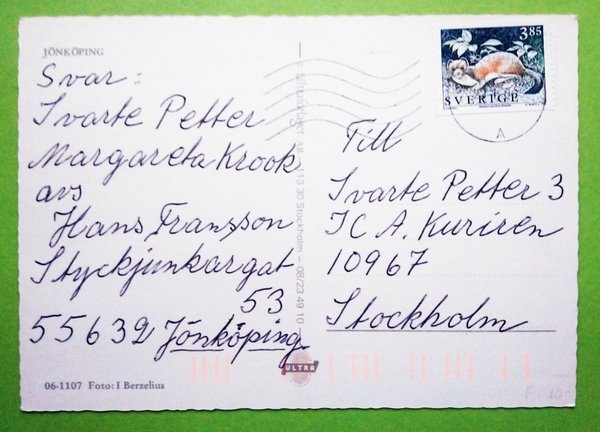 JÖNKÖPING
Svar:
Svarte Petter
Margareta Krook
avs
Hans Fransson
Styckjunkargat
53
55632 Jönköping
06-1107 Foto: I Berzelius
ULTRA
113 30 Stockholm – 08/23 49 10
3.85
SVERIGE
A
Till
Svarte Petter 3
ICA. Kuriren
10967
Stockholm